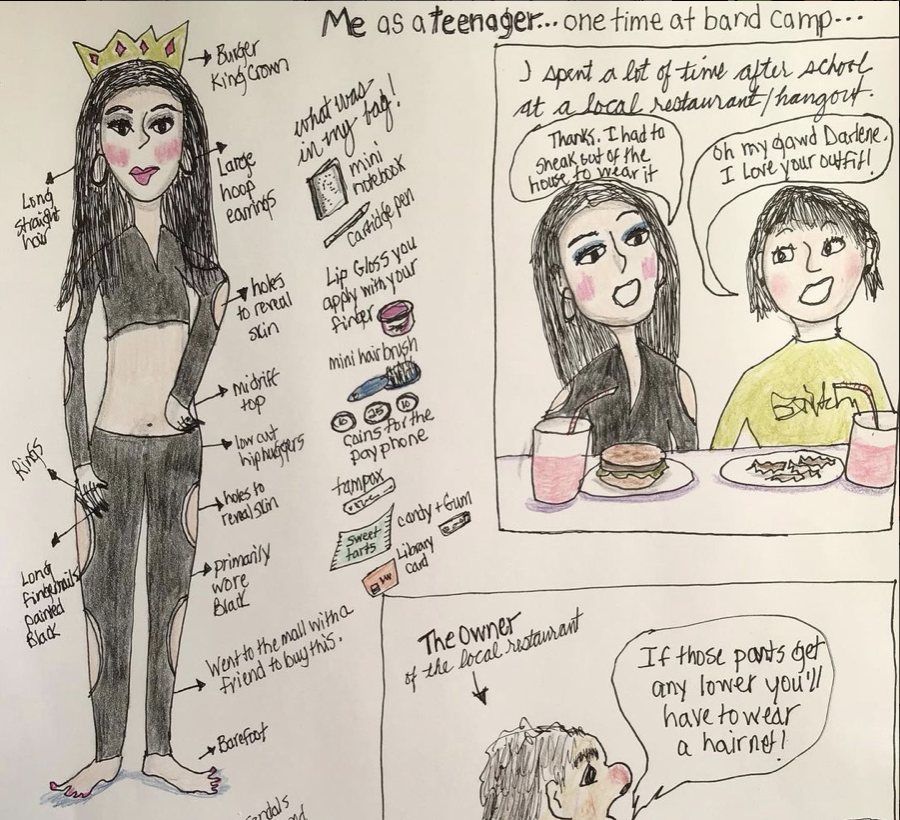 Me as a teenager... one time at band camp...
Burger
King Crown
Long
straight
hair
Large
hoop
earrings
holes
to reveal
skin
midrift
top
low cut
hip huggers
Rings
holes to
reveal skin
Long
fingernails
painted
Black
primarily
wore
Black
Went to the mall with a
friend to buy this.
Barefoot
what was
in my bag!
mini
notebook
cartidge pen
Lip Gloss you
apply with your
finger
mini hairbrush
10 25 10
coins for the
pay phone
tampax
candy + Gum
sweet
tarts
Library
card
I spent a lot of time after school
at a local restaurant/hangout.
Thanks. I had to
sneak out of the
house to wear it
Oh my gawd Darlene.
I love your outfit!
The Owner
of the local restaurant
If those pants get
any lower you'll
have to wear
a hairnet!